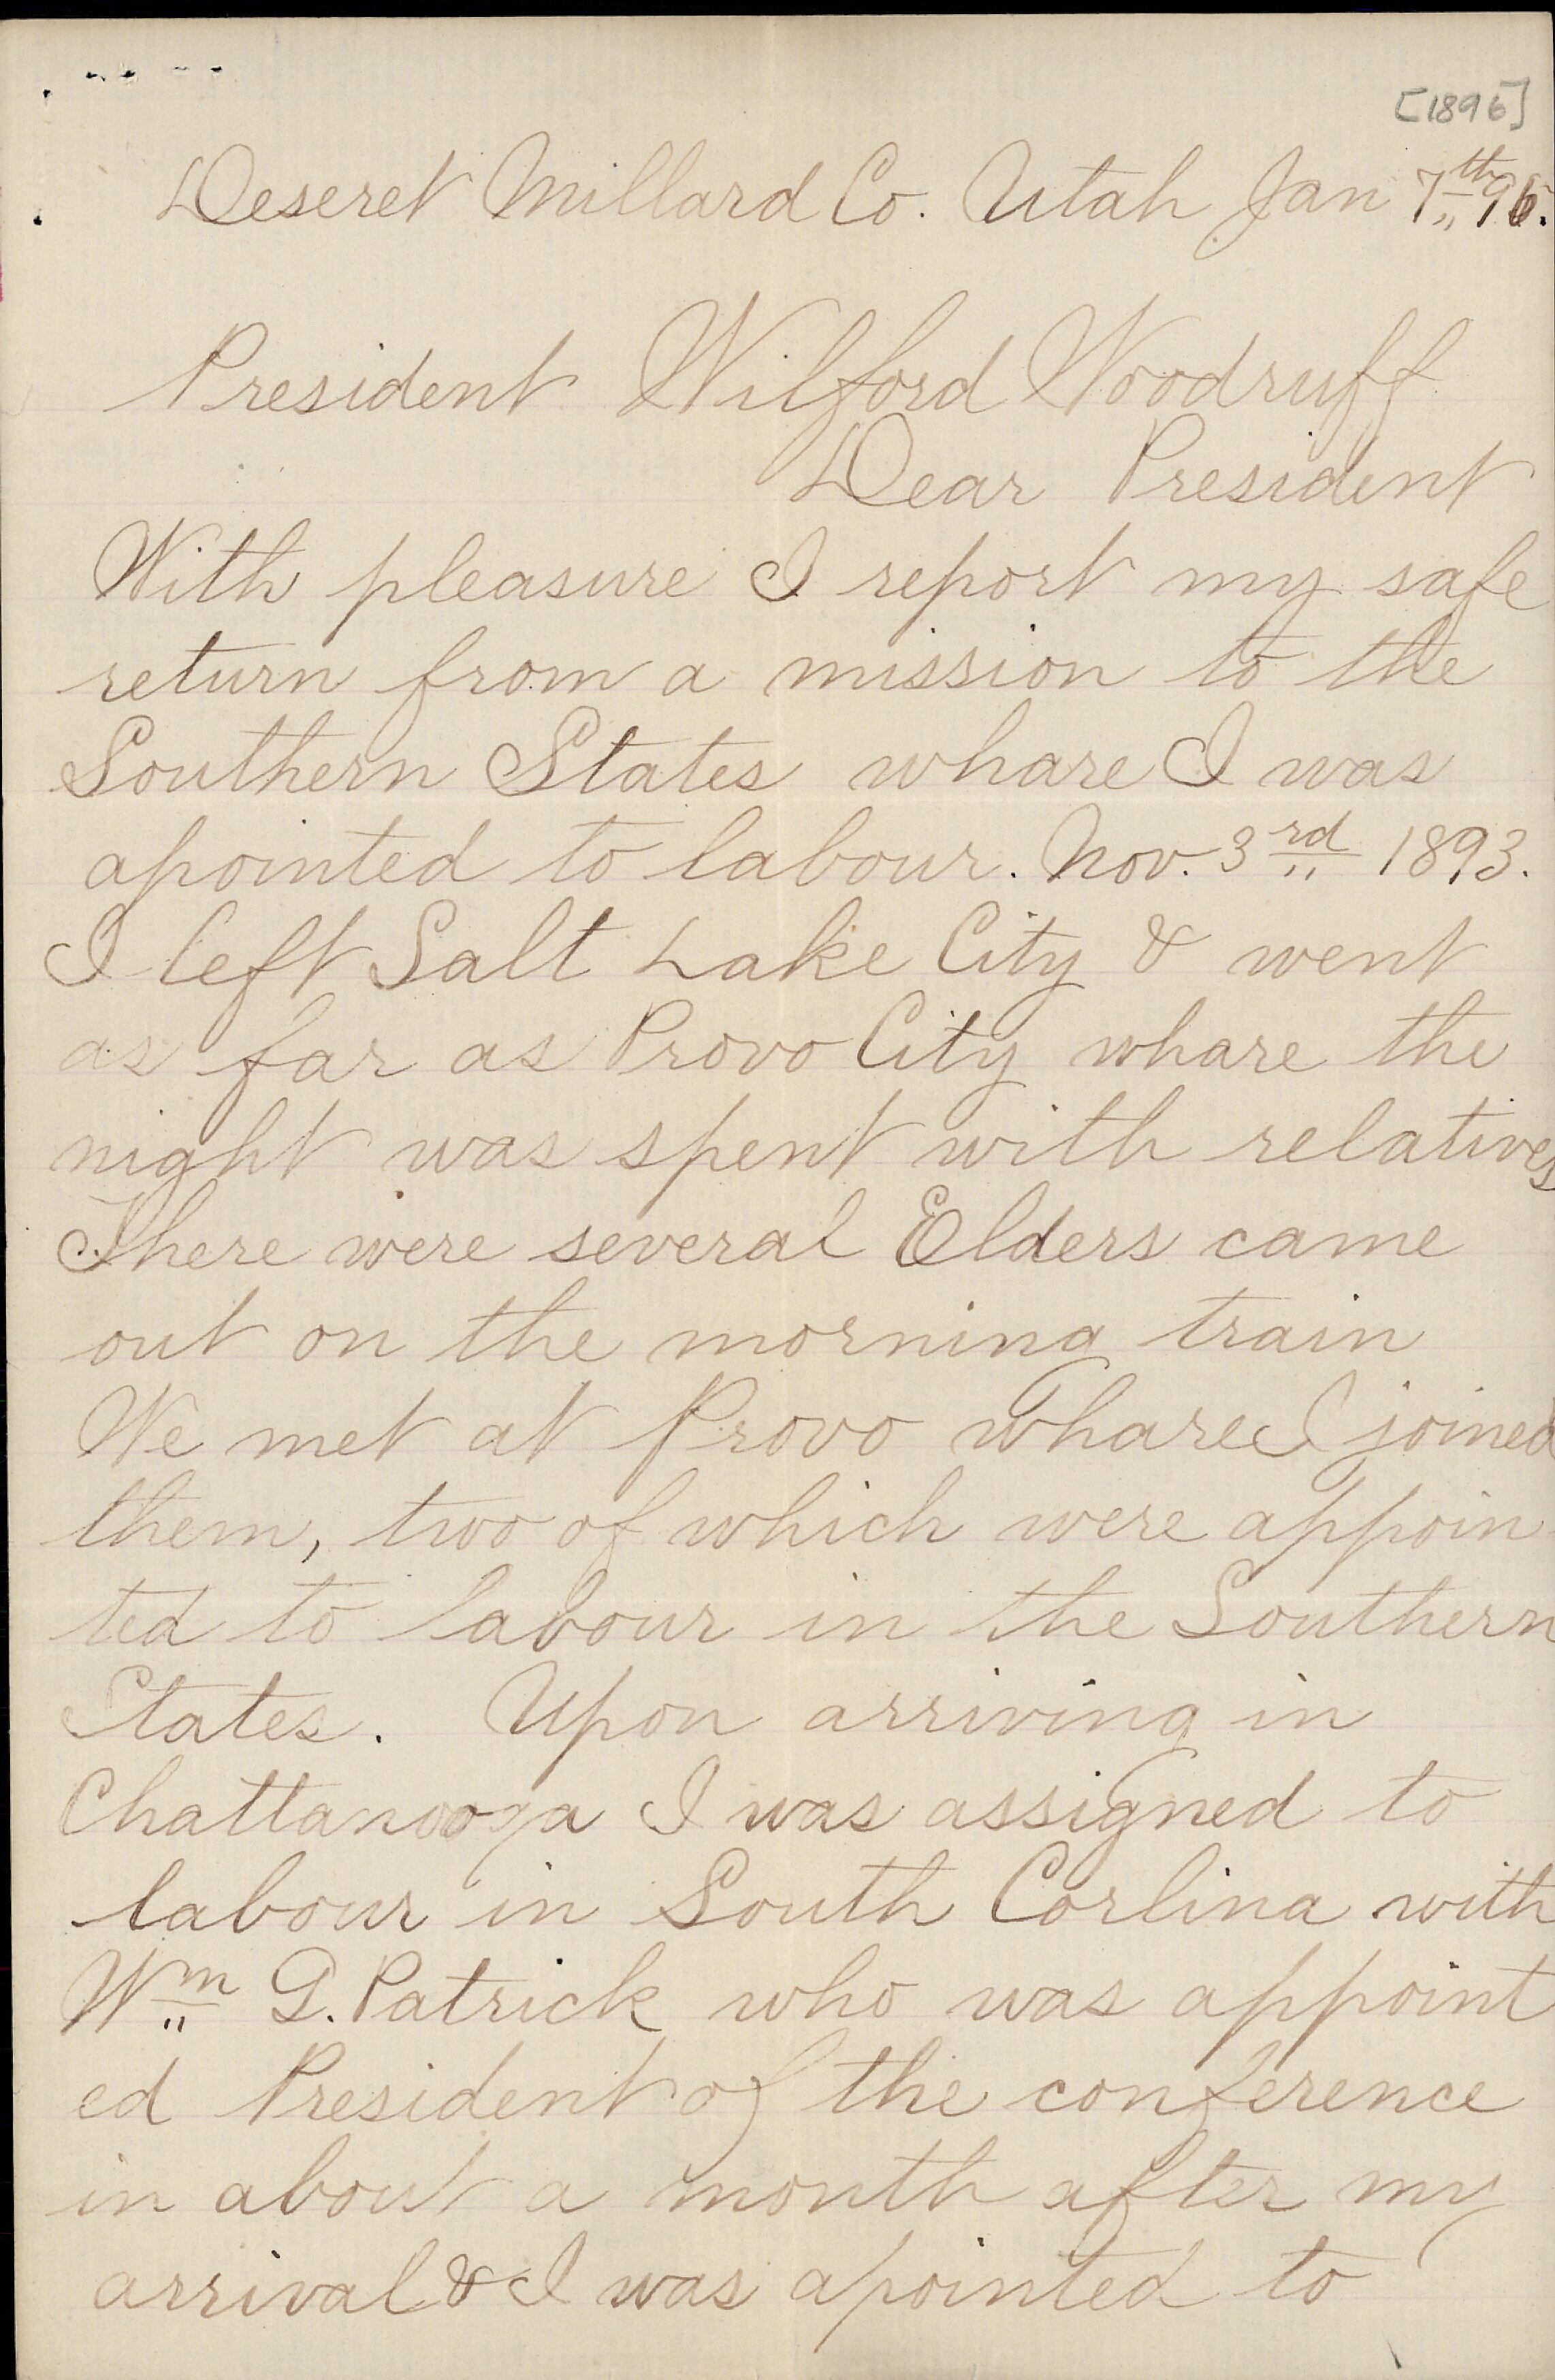 [1896]
Deseret Millard Co. Utah Jan 7th 96.
President Wilford Woodruff
Dear President
With pleasure I report my safe
return from a mission to the
Southern States whare I was
apointed to labour. Nov. 3rd 1893.
I left Salt Lake City & went
as far as Provo City whare the
night was spent with relatives
There were several Elders came
out on the morning train
We met at Provo whare I joined
them, two of which were appoin
ted to labour in the Southern
States. Upon arriving in
Chattanooga I was assigned to
labour in South Corlina with
Wm G. Patrick who was appoint
ed President of the conference
in about a month after my
arrival & I was apointed to